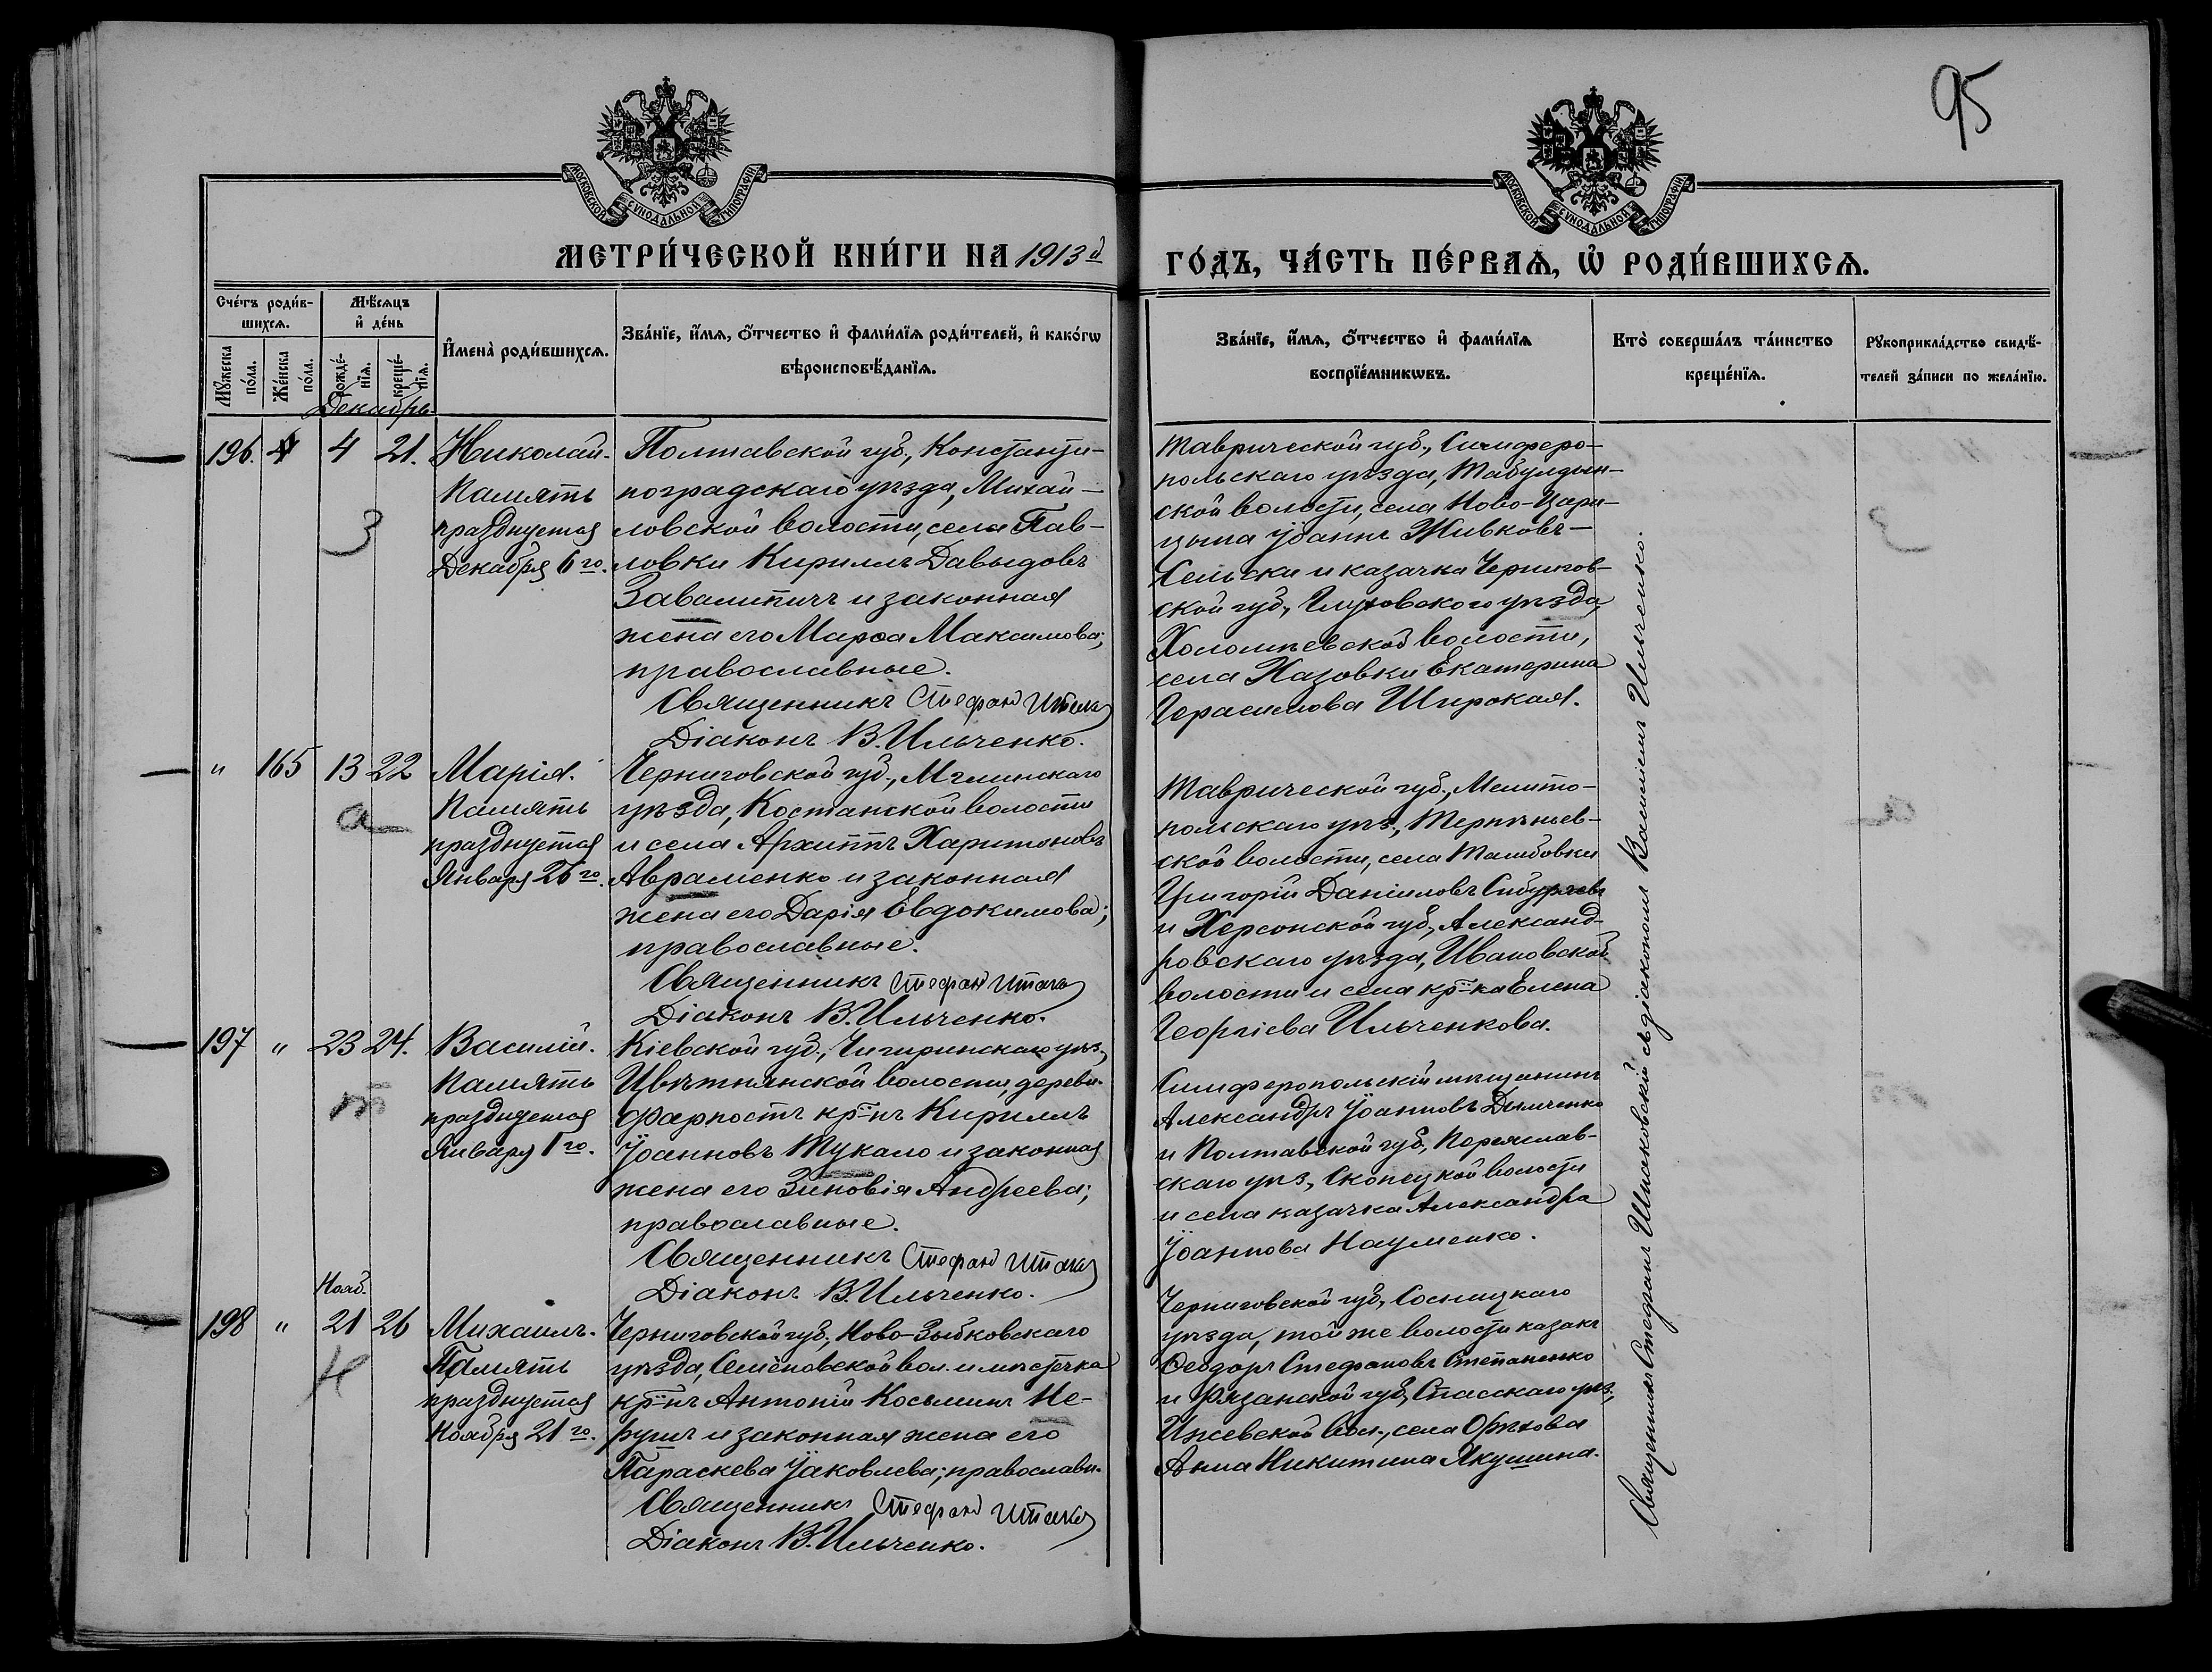 95
МОСКОВСКОЙ СУНОДАЛЬНОЙ ТИПОГРАФІИ
МОСКОВСКОЙ СУНОДАЛЬНОЙ ТИПОГРАФІИ
МЕТРИ́ЧЕСКОЙ КНИ́ГИ НА 1913й
ГО́ДЪ, ЧА́СТЬ ПЕ́РВАѦ, Ѡ҆ РОДИ́ВШИХСѦ.
Сче́тъ роди́в-
шихсѧ.
Мѣ́сѧцъ
и҆ де́нь
Мꙋ́жеска
по́ла.
Же́нска
по́ла.
рожде́-
нїѧ.
креще́-
нїѧ.
И҆мена̀ роди́вшихсѧ.
Зва́нїе, и҆́мѧ, ѻ҆́тчество и҆ фами́лїѧ роди́телей, и҆ како́гѡ
вѣроисповѣ́данїѧ.
Зва́нїе, и҆́мѧ, ѻ҆́тчество и҆ фами́лїѧ
воспрїе́мникѡвъ.
Кто̀ соверша́лъ та́инство
креще́нїѧ.
Рꙋкоприкла́дство свидѣ́-
телей за́писи по жела́нїю.
Декабрь.
196. 4 21. Николай.
Память
празднуется
Декабря 6го.
З
Полтавской губ., Константи-
ноградскаго уѣзда, Михай-
ловской волости, села Пав-
ловки Кириллъ Давыдовъ
и законная
жена его Марѳа Максимова;
православные.
Священникъ Стефанъ
Діаконъ В. Ильченко.
Таврической губ., Симферо-
польскаго уѣзда, Табулдин-
ской волости, села Ново-Цари-
цына Іоаннъ Живковъ-
и казачка Чернигов-
ской губ., Глуховскаго уѣзда,
волости,
села Екатерина
Герасимова Широкая.
" 165 13 22 Марія.
Память
празднуется
Января 26го.
а
Черниговской губ., Мглинскаго
уѣзда, Костанской волости
и села Архиппъ Харитоновъ
Авраменко и законная
жена его Дарія Евдокимова;
православные.
Священникъ Стефанъ
Діаконъ В. Ильченко.
Таврической губ., Мелито-
польскаго уѣз., Терпѣньев-
ской волости, села
Григорій Даніиловъ
и Херсонской губ., Александ-
ровскаго уѣзда, Ивановской
волости и села кр-ка Елена
Георгіева Ильченкова.
197 " 23 24. Василій.
Память
празднуется
Января 1го.
т
Кіевской губ., Чигиринскаго уѣз.,
Цвѣтнянской волости, деревн.
Фарпостъ кр-нъ Кириллъ
Іоанновъ Тукало и законная
жена его Зиновія Андреева;
православные.
Священникъ Стефанъ
Діаконъ В. Ильченко.
Симферопольскій мѣщанинъ
Александръ Іоанновъ Дымченко
и Полтавской губ., Переяслав-
скаго уѣз., Скопецкой волости
и села казачка Александра
Іоаннова Науменко.
Нояб.
198 " 21 26 Михаилъ.
Память
празднуется
Ноября 21го.
Н
Черниговской губ., Ново-Зыбковскаго
уѣзда, Семёновской вол. и мѣстечка
кр-нъ Антоній Косьминъ Не-
рушъ и законная жена его
Параскева Іаковлева; православн.
Священникъ Стефанъ
Діаконъ В. Ильченко.
Черниговской губ., Сосницкаго
уѣзда, той же волости казакъ
Ѳеодоръ Стефановъ Степаненко
и Рязанской губ., Спасскаго уѣз.,
Ижевской вол., села Орѣхова
Анна Никитина Якушина.
Священникъ Стефанъ съ діакономъ Ильченко.